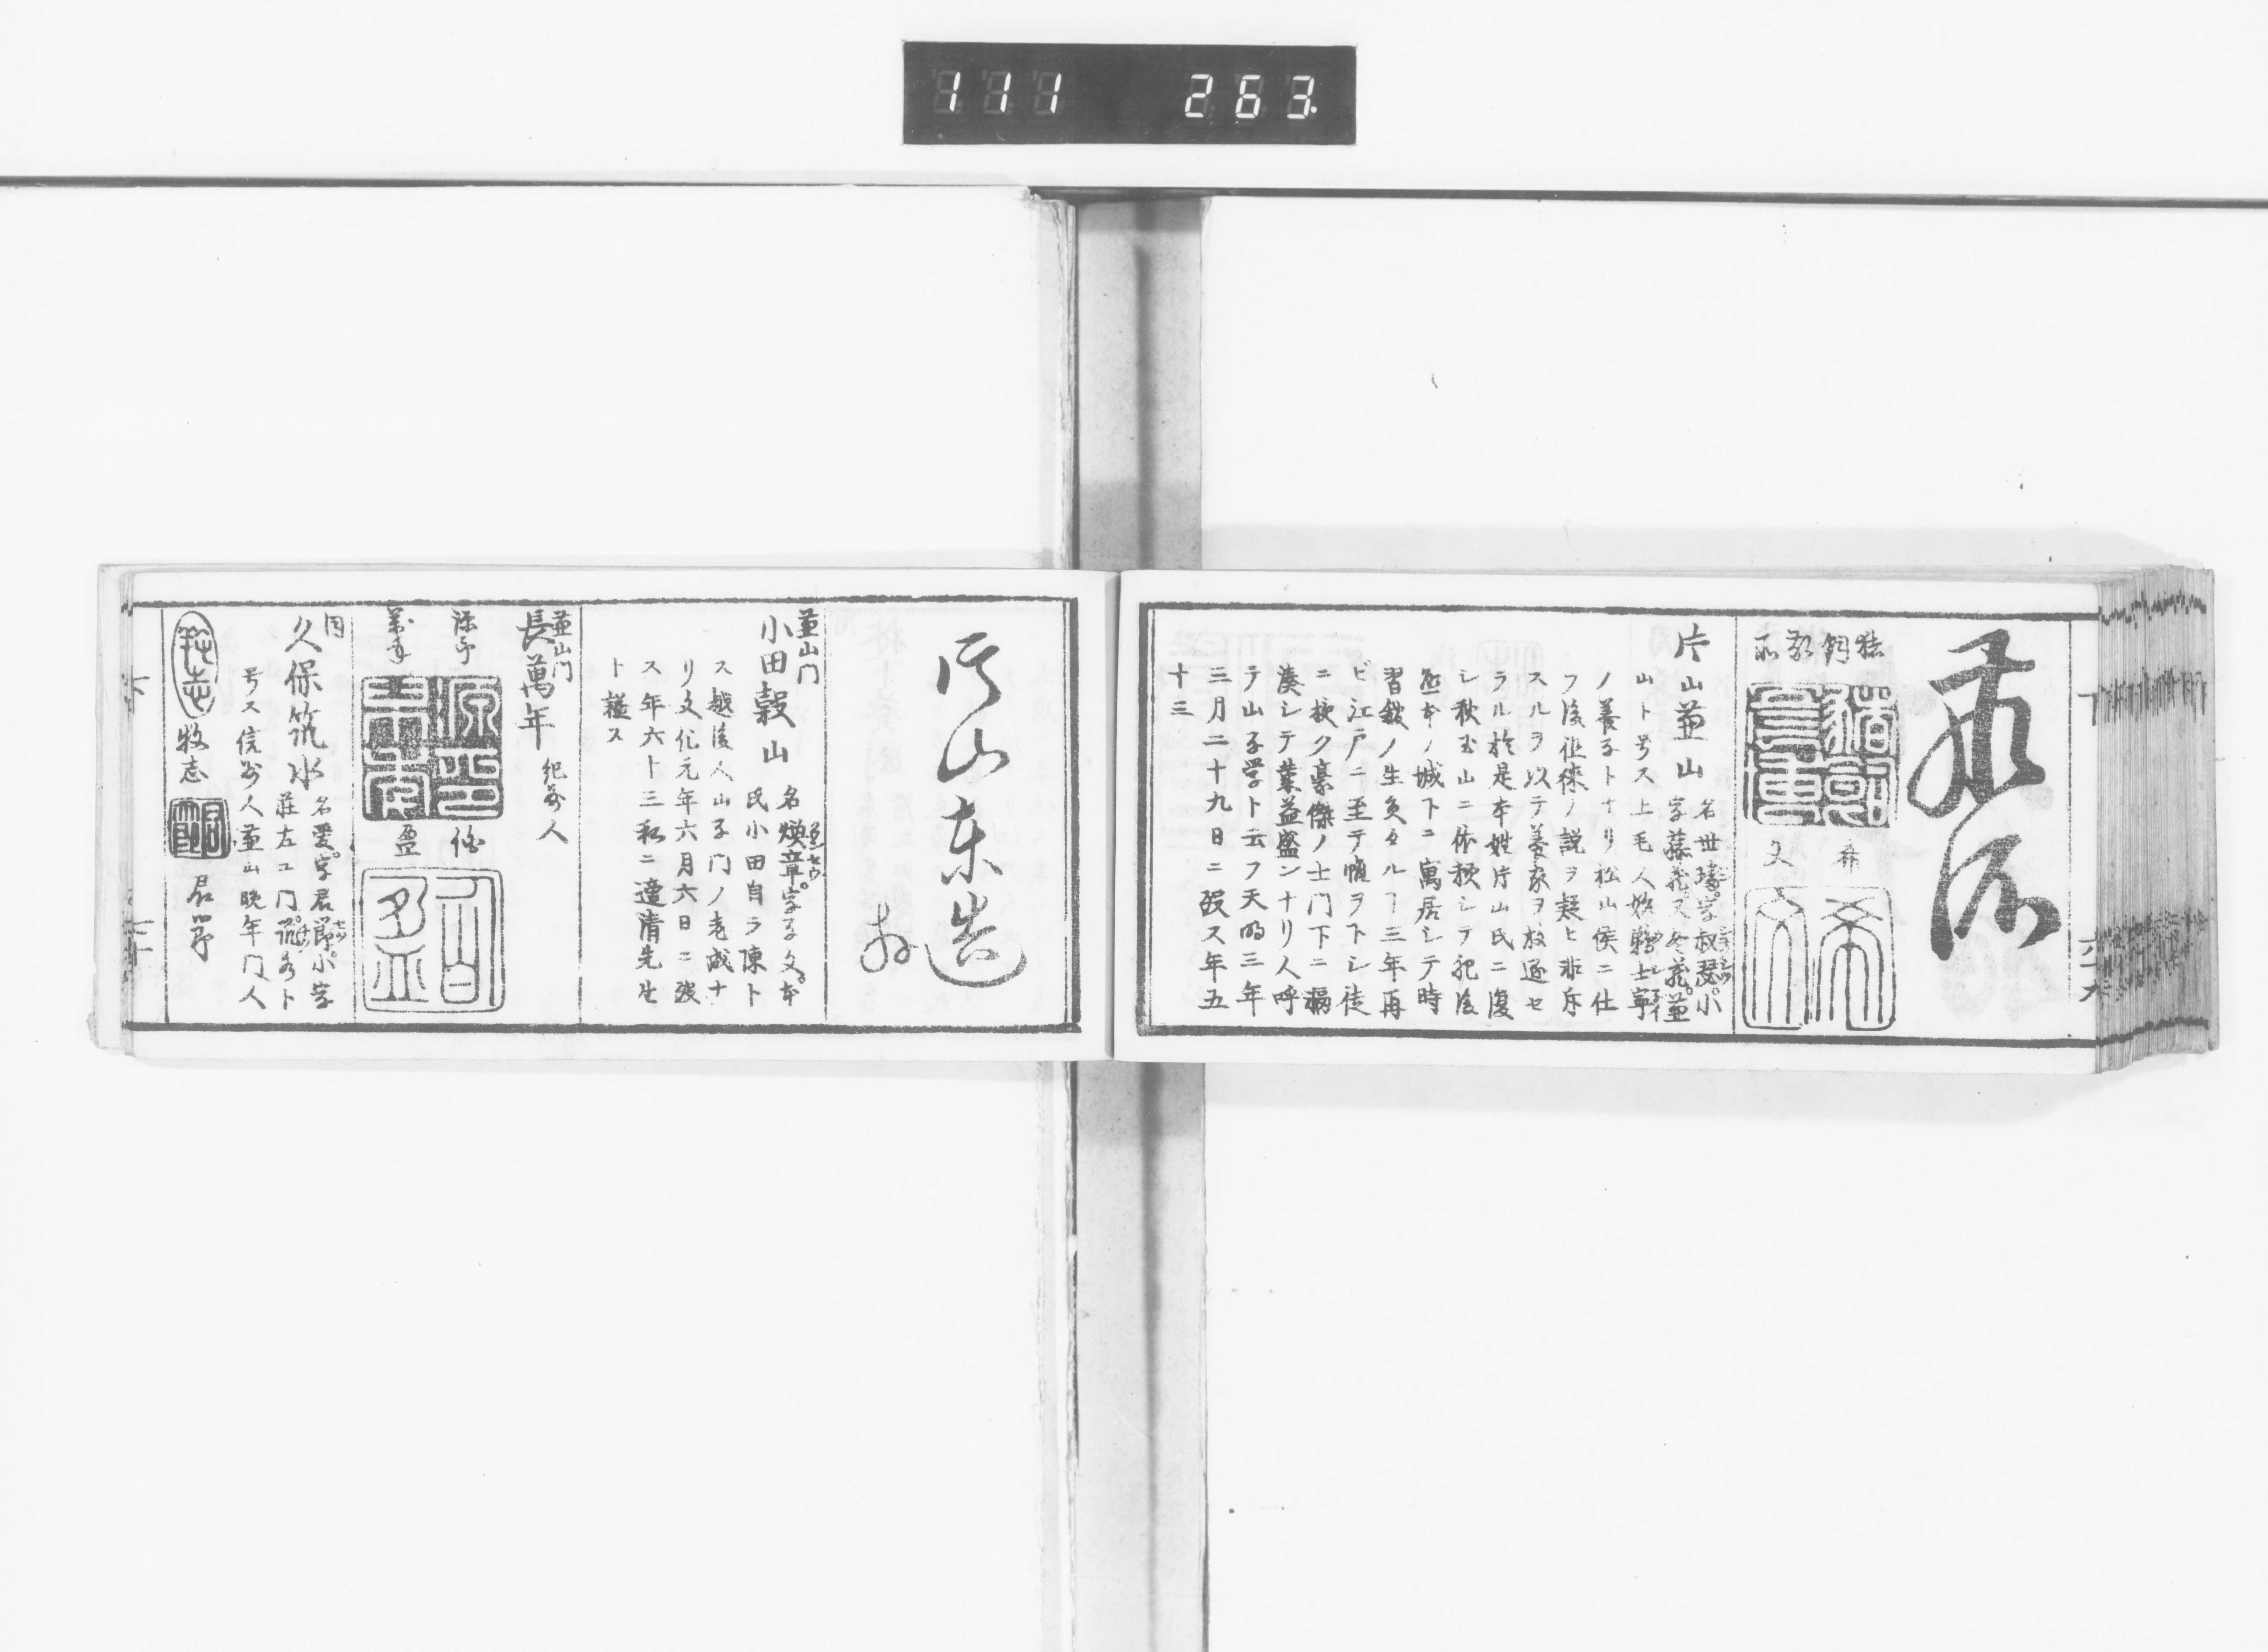 111 263.
猪飼敬所
希
文
片山兼山
名世璠字叔瑟小
字藤蔵又冬蔵兼
山ト号ス上毛人鵜士寧
ノ養子トナリ松山侯ニ仕
フ後徂徠ノ説ヲ疑ヒ非斥
スルヲ以テ養家ヲ放逐セ
ラル於是本姓片山氏ニ復
シ秋玉山ニ依
ノ城下ニ寓居シテ時
三年再
ビ江戸ニ至テ帷ヲ下シ徒
ニ授ク豪傑ノ士門下ニ輻
湊シテ業益盛ンナリ人呼
テ山子学ト云フ天明三年
三月二十九日ニ歿ス年五
十三
六十六
片山東造
兼山門
小田穀山
名煥章字子文本
氏小田自ラ陳ト
ス越後人山子門ノ老成ナ
リ文化元年六月六日ニ歿
ス年六十三私ニ達清先生
ト謚ス
兼山門
長萬年
紀藩人
源印
萬年
修
盈
同
久保筑水
名愛字君節小字
荘左エ門筑水ト
号ス信州人兼山晩年門人
牧志
君節